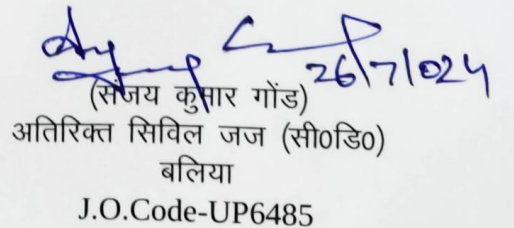 26/7/024
(संजय कुमार गोंड)
अतिरिक्त सिविल जज (सी०डि०)
बलिया
J.O.Code-UP6485